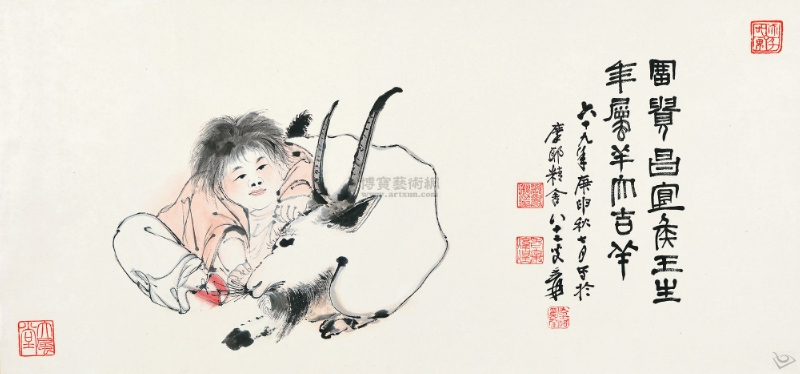 富貴昌宜侯王生
年屬羊大吉羊
六十九年庚申秋七月写於
摩耶精舍八十二叟爰
大風堂
博寶藝術網
www.artxun.com